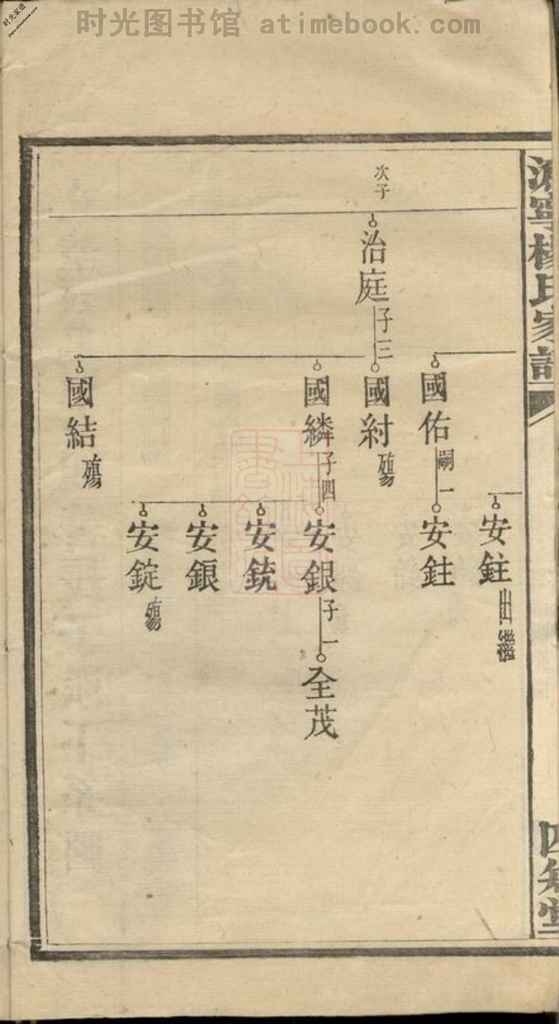 时光图书馆 atimebook.com
寧楊氏家譜
四知堂
安鉒 出繼
國佑 嗣一
安鉒
次子
治庭 子三
國紂 殤
國繗 子四
安銀 子一
全茂
安銃
安鋃
安錠 殤
國結 殤